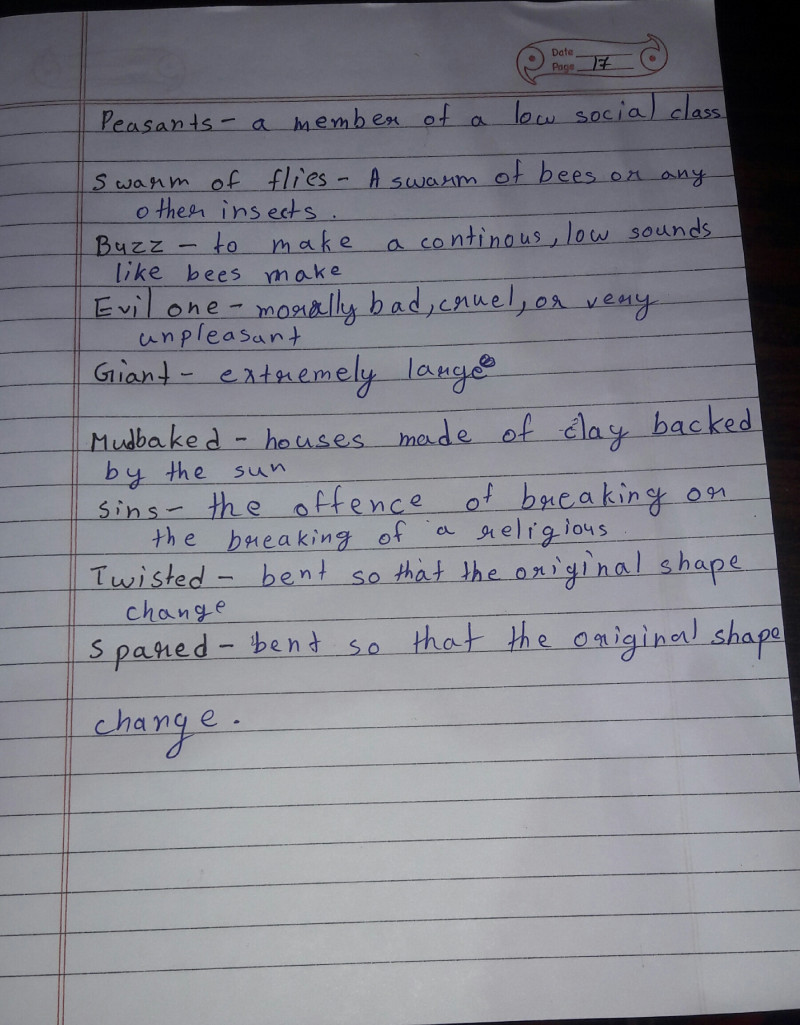 Date
Page 17
Peasants - a member of a low social class
Swarm of flies - A swarm of bees or any
other insects.
Buzz - to make a continous, low sounds
like bees make
Evil one - morally bad, cruel, or very
unpleasant
Giant - extremely large
Mudbaked - houses made of clay backed
by the sun
Sins - the offence of breaking or
the breaking of a religious
Twisted - bent so that the original shape
change
Spared - bent so that the original shape
change.